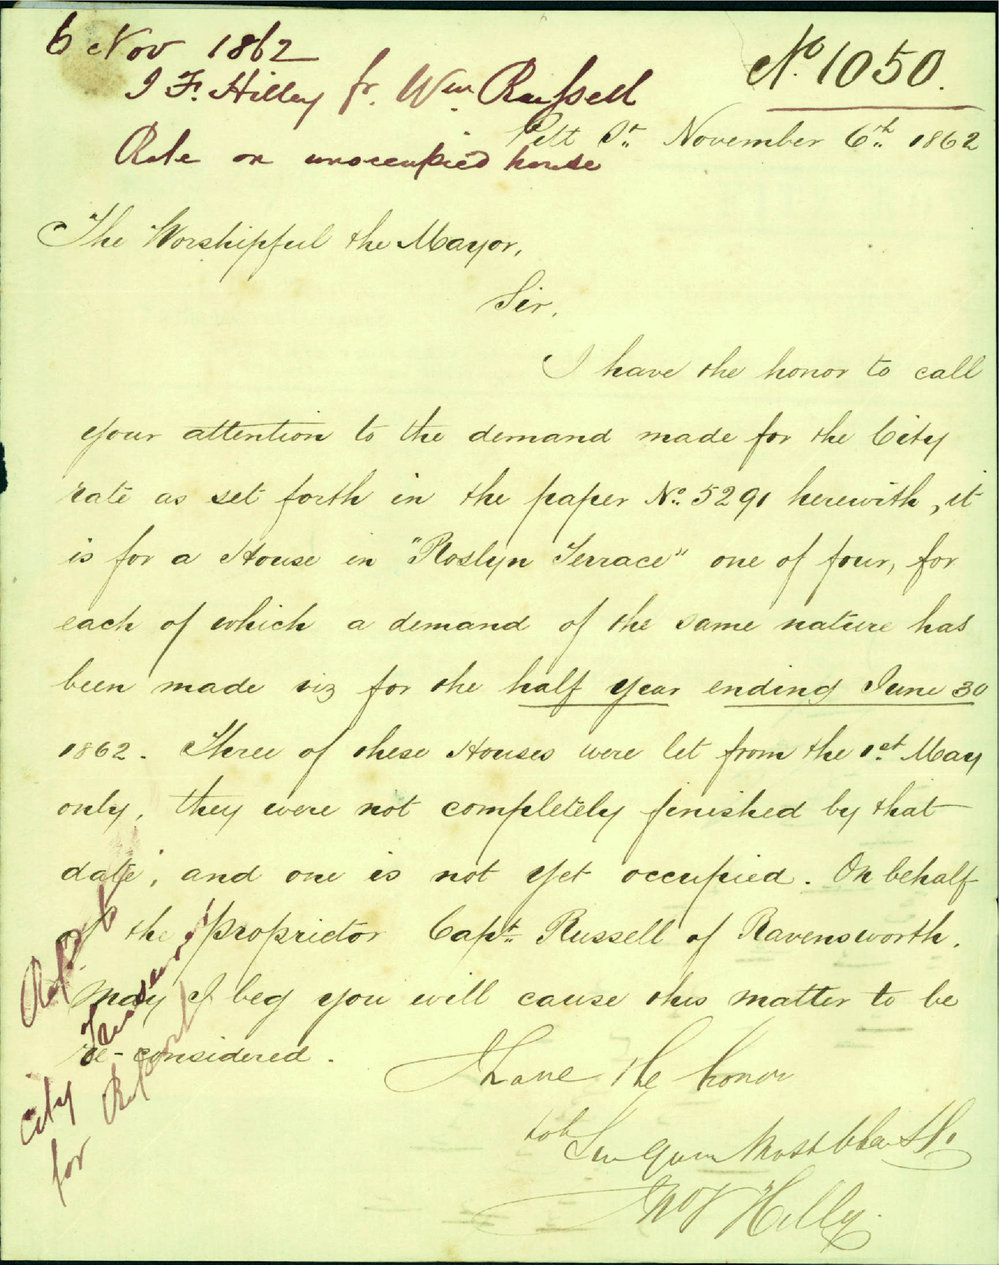 6 Nov 1862
J F. Hilley fr. Wm Russell
Rate on unoccupied house
No. 1050.
Pitt St. November 6th. 1862
The Worshipful the Mayor,
Sir,
I have the honor to call
your attention to the demand made for the City
rate as set forth in the paper No. 5291 herewith, it
is for a House in "Roslyn Terrace" one of four, for
each of which a demand of the same nature has
been made viz for the half year ending June 30
1862. Three of these Houses were let from the 1st. May
only, they were not completely finished by that
date, and one is not yet occupied. On behalf
of the proprietor Capt. Russell of Ravensworth.
May I beg you will cause this matter to be
re-considered.
I have the honor
to be
Sir your most Obedt St.
Jno F Hilly.
Refd to
City Treasurer
for Report